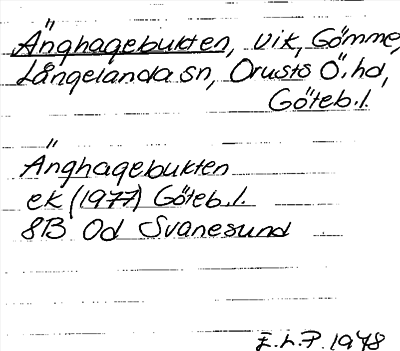 Änghagebukten, vik, Gömme,
Långelanda sn, Orusts Ö. hd,
Göteb. l.
Änghagebukten
ek (1977) Göteb. l.
8B 0d Svanesund
E.L.P. 1978